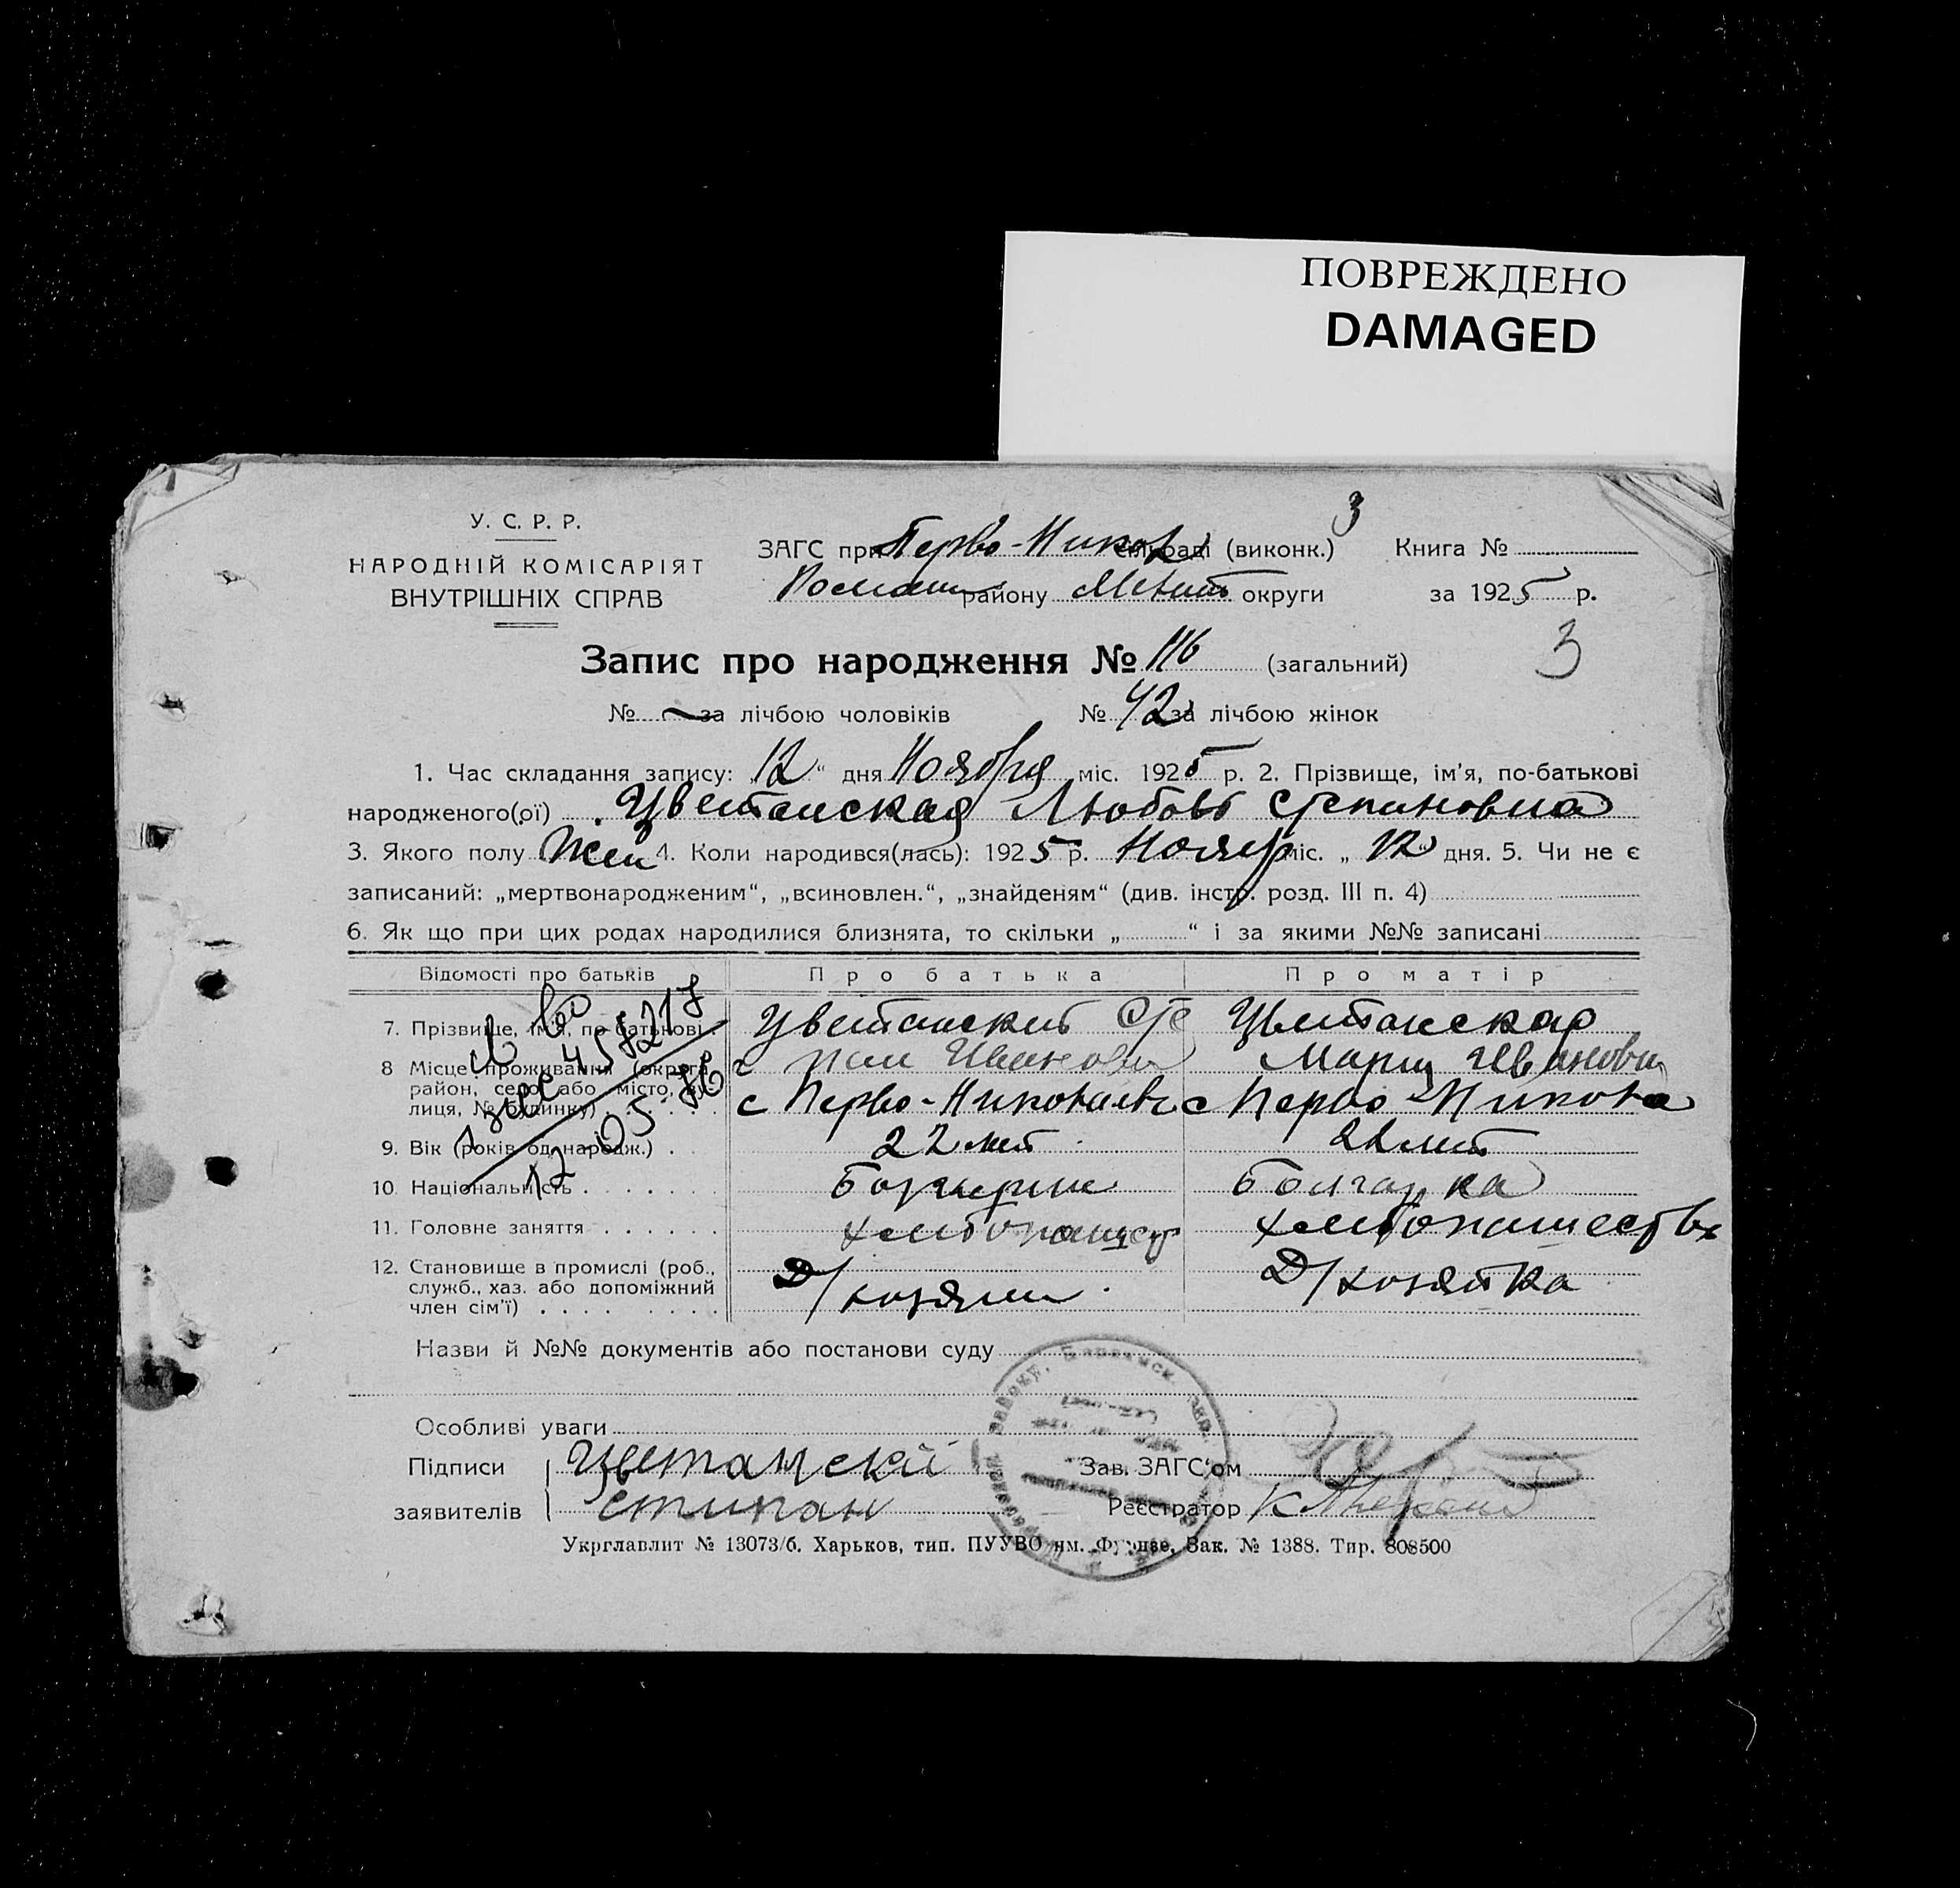 ПОВРЕЖДЕНО
DAMAGED
3
У. С. Р. Р.
НАРОДНІЙ КОМІСАРІЯТ
ВНУТРІШНІХ СПРАВ
ЗАГС при Перво-Никол сільраді (виконк.) Книга №
району округи за 1925 р.
Запис про народження № 116 (загальний)
3
№ за лічбою чоловіків № 42 за лічбою жінок
1. Час складання запису: „12“ дня Ноября міс. 1925 р. 2. Прізвище, ім’я, по-батькові
народженого(ої) Цветанская Любовь Степановна
3. Якого полу Жен 4. Коли народився(лась): 1925 р. Ноябр міс. „12“ дня. 5. Чи не є
записаний: „мертвонародженим“, „всиновлен.“, „знайденям“ (див. інстр. розд. III п. 4)
6. Як що при цих родах народилися близнята, то скільки „ “ і за якими №№ записані
Відомості про батьків Про батька Про матір
7. Прізвище, ім’я, по батькові Цветанский Сте Цветанская
пан Иванови Мария Ивановн
8 Місце проживання (округа, район, село або місто, вулиця, № будинку) с Перво-Николаевк с Перво Никола
9. Вік (років од народж.) 22 лет 22 лет
10. Національність Болгарин Болгарка
11. Головне заняття хлебопашест хлебопашество
12. Становище в промислі (роб., служб., хаз. або допоміжний член сім’ї) Д/хозяин Д/хозяйка
Назви й №№ документів або постанови суду
Особливі уваги
Підписи Цветанскй Зав. ЗАГС’ом
заявителів Стипан Реєстратор
Укрглавлит № 13073/б. Харьков, тип. ПУУВО им. Фрунзе, Зак. № 1388. Тир. 808500